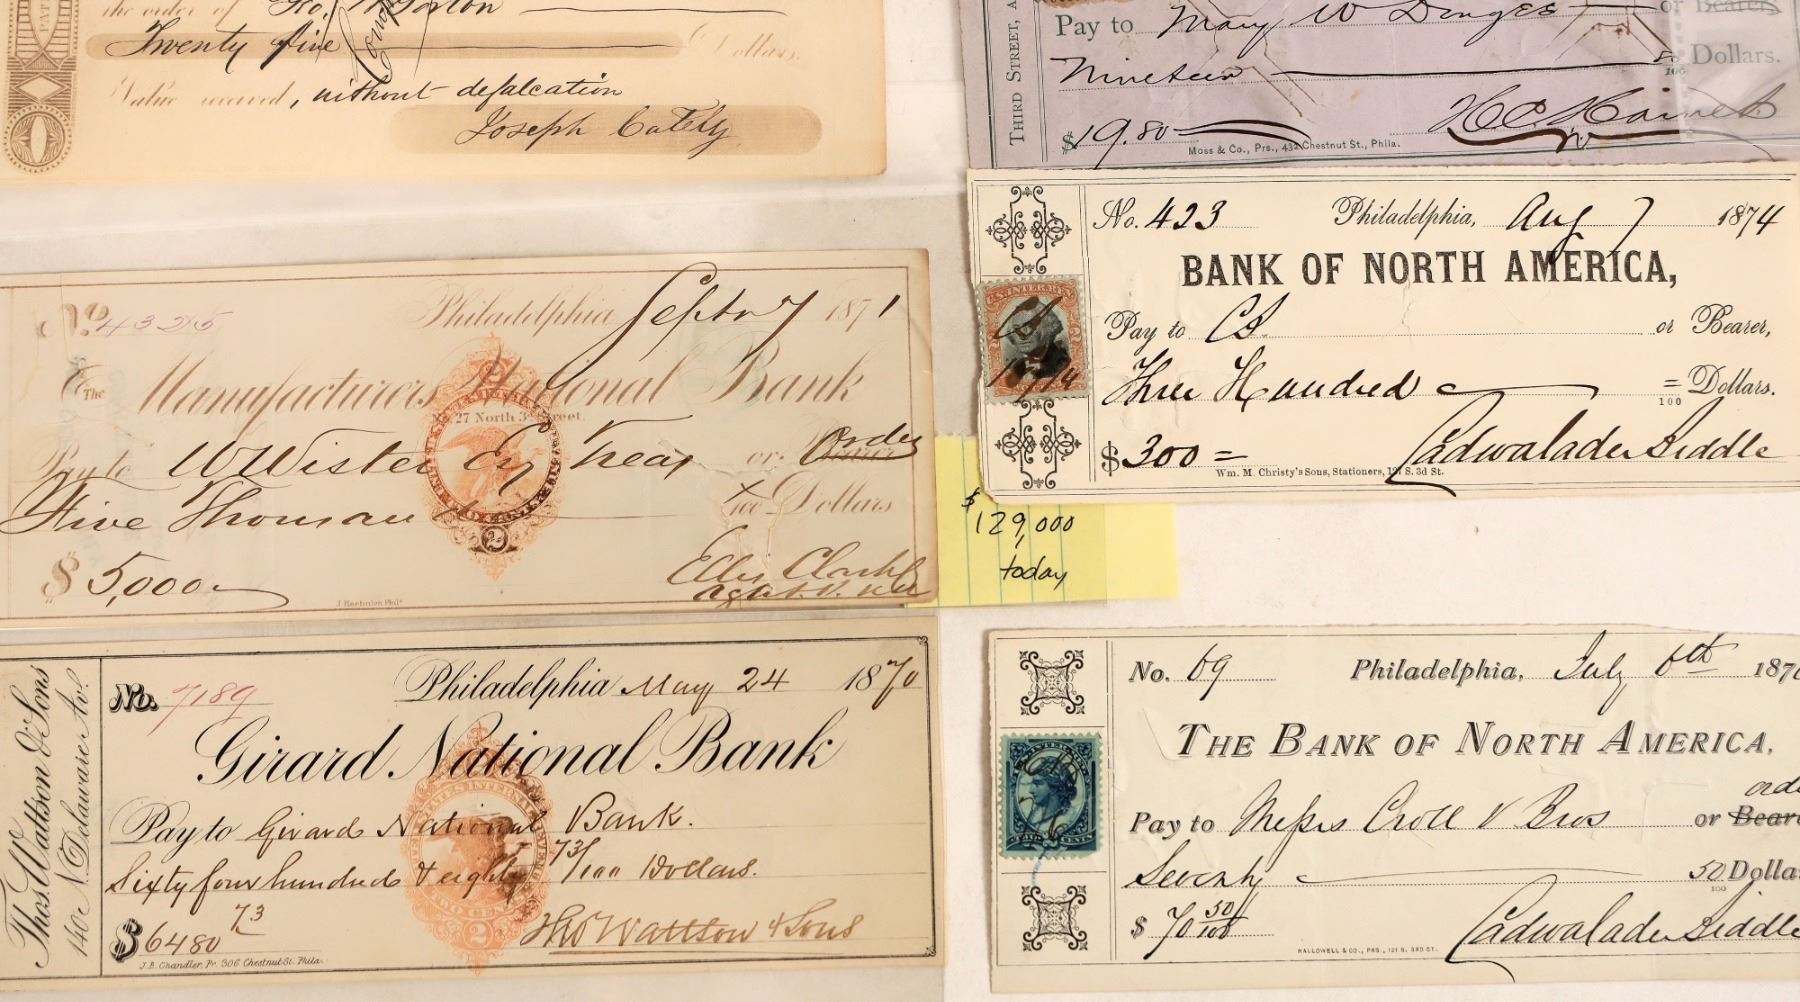 the order of Geo. Morton
Twenty five Dollars,
Value received, without defalcation
Joseph Cately
THIRD STREET,
Pay to Mary W Dinges or Bearer,
Nineteen 80/100 Dollars.
$19.80
Moss & Co., Prs., 432 Chestnut St., Phila.
No. 423 Philadelphia, Aug 7 1874
BANK OF NORTH AMERICA,
U.S. INTER. REV.
Pay to or Bearer,
Three Hundred = Dollars.
100
$300 = Cadwalader Biddle
Wm. M. Christy's Sons, Stationers, 127 S. 3d St.
No. 4325 Philadelphia Septr 7 1871
The Manufacturers National Bank
No. 27 North 3d Street.
Pay to W Wister Treas or Order
Five Thousand /100 Dollars
$5,000
J Haehnlen Phila
$129,000
today
Thos. Wattson & Sons
140 N. Delaware Av.
No. 7189 Philadelphia May 24 1870
Girard National Bank
Pay to Girard National Bank.
Sixty four hundred & eighty 73/100 Dollars.
$6480 73 Tho Wattson & Sons
TWO CENTS
2
J.B. Chandler, Pr. 306 Chestnut St. Phila.
No. 69 Philadelphia, July 6th 187
THE BANK OF NORTH AMERICA,
Pay to Messrs Croll & Bros or Beare
orde
Seventy 50/100 Dolla
$70 50/100 Cadwalader Biddle
HALLOWELL & CO., PRS., 121 S. 3RD ST.